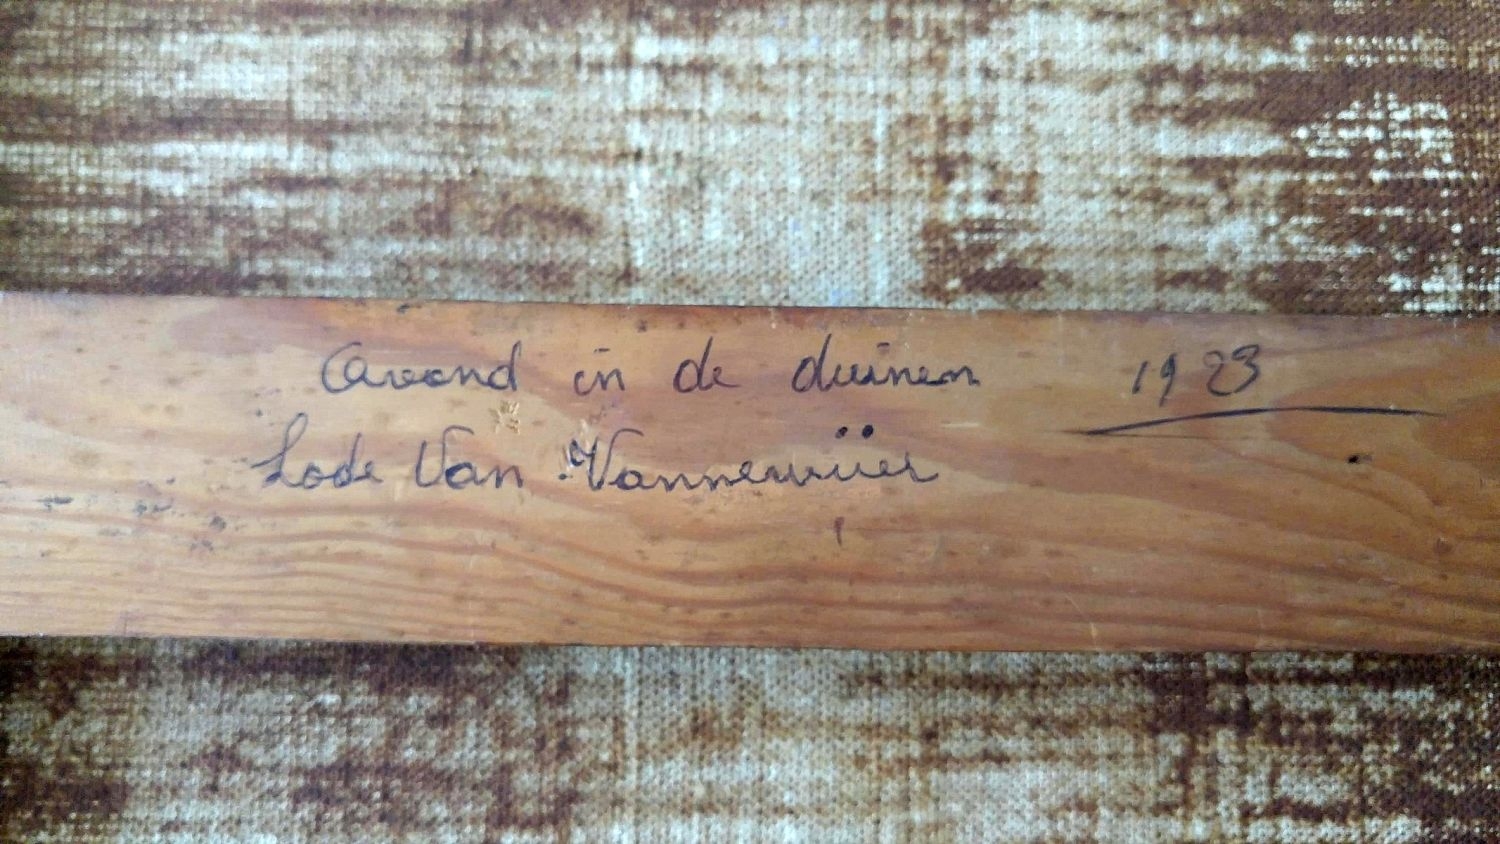 Avond in de duinen 1923
Lode Van